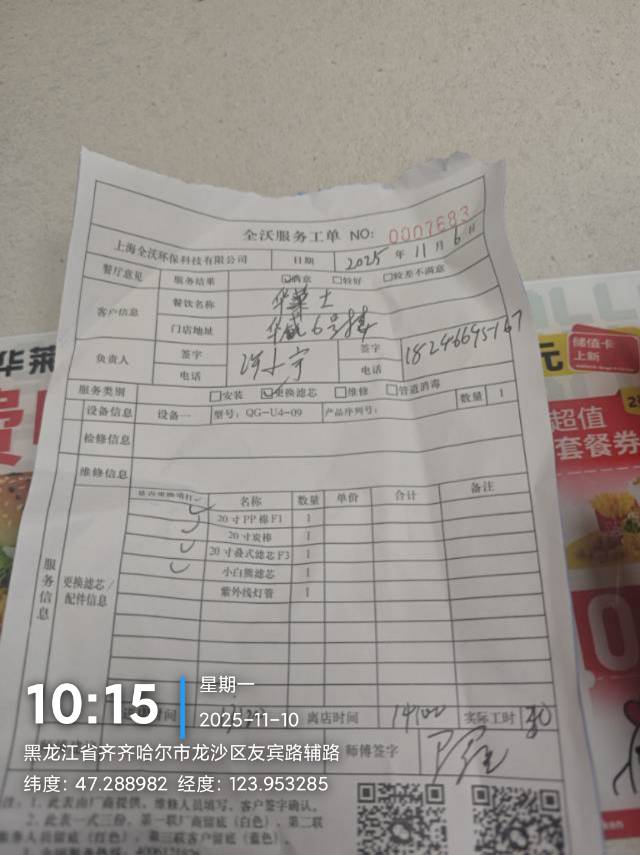 全沃服务工单 NO: 0007683
上海全沃环保科技有限公司 日期 2025 年 11 月 6 日
餐厅意见 服务结果 满意 较好 较差不满意
客户信息 餐饮名称 华莱士
门店地址 华威6号楼
负责人 签字 签字
电话 电话 18246695767
服务类别 安装 更换滤芯 维修 管道消毒
设备信息 设备一 型号: QG-U4-09 产品序列号: 数量 1
检修信息
维修信息
服务信息
更换滤芯/配件信息
名称 数量 单价 合计 备注
20寸PP棉F1 1
20寸炭棒 1
20寸叠式滤芯F3 1
小白熊滤芯 1
紫外线灯管 1
时间 离店时间 14:00 实际工时 30
师傅签字
10:15
星期一
2025-11-10
黑龙江省齐齐哈尔市龙沙区友宾路辅路
纬度: 47.288982 经度: 123.953285
注: 1. 此表由厂商提供、维修人员填写、客户签字确认。
2. 此表一式三份, 第一联厂商留底(白色)、第二联
服务人员留底(红色)、第三联客户留底(蓝色)。
华莱
元
储值卡
上新
超值
套餐券